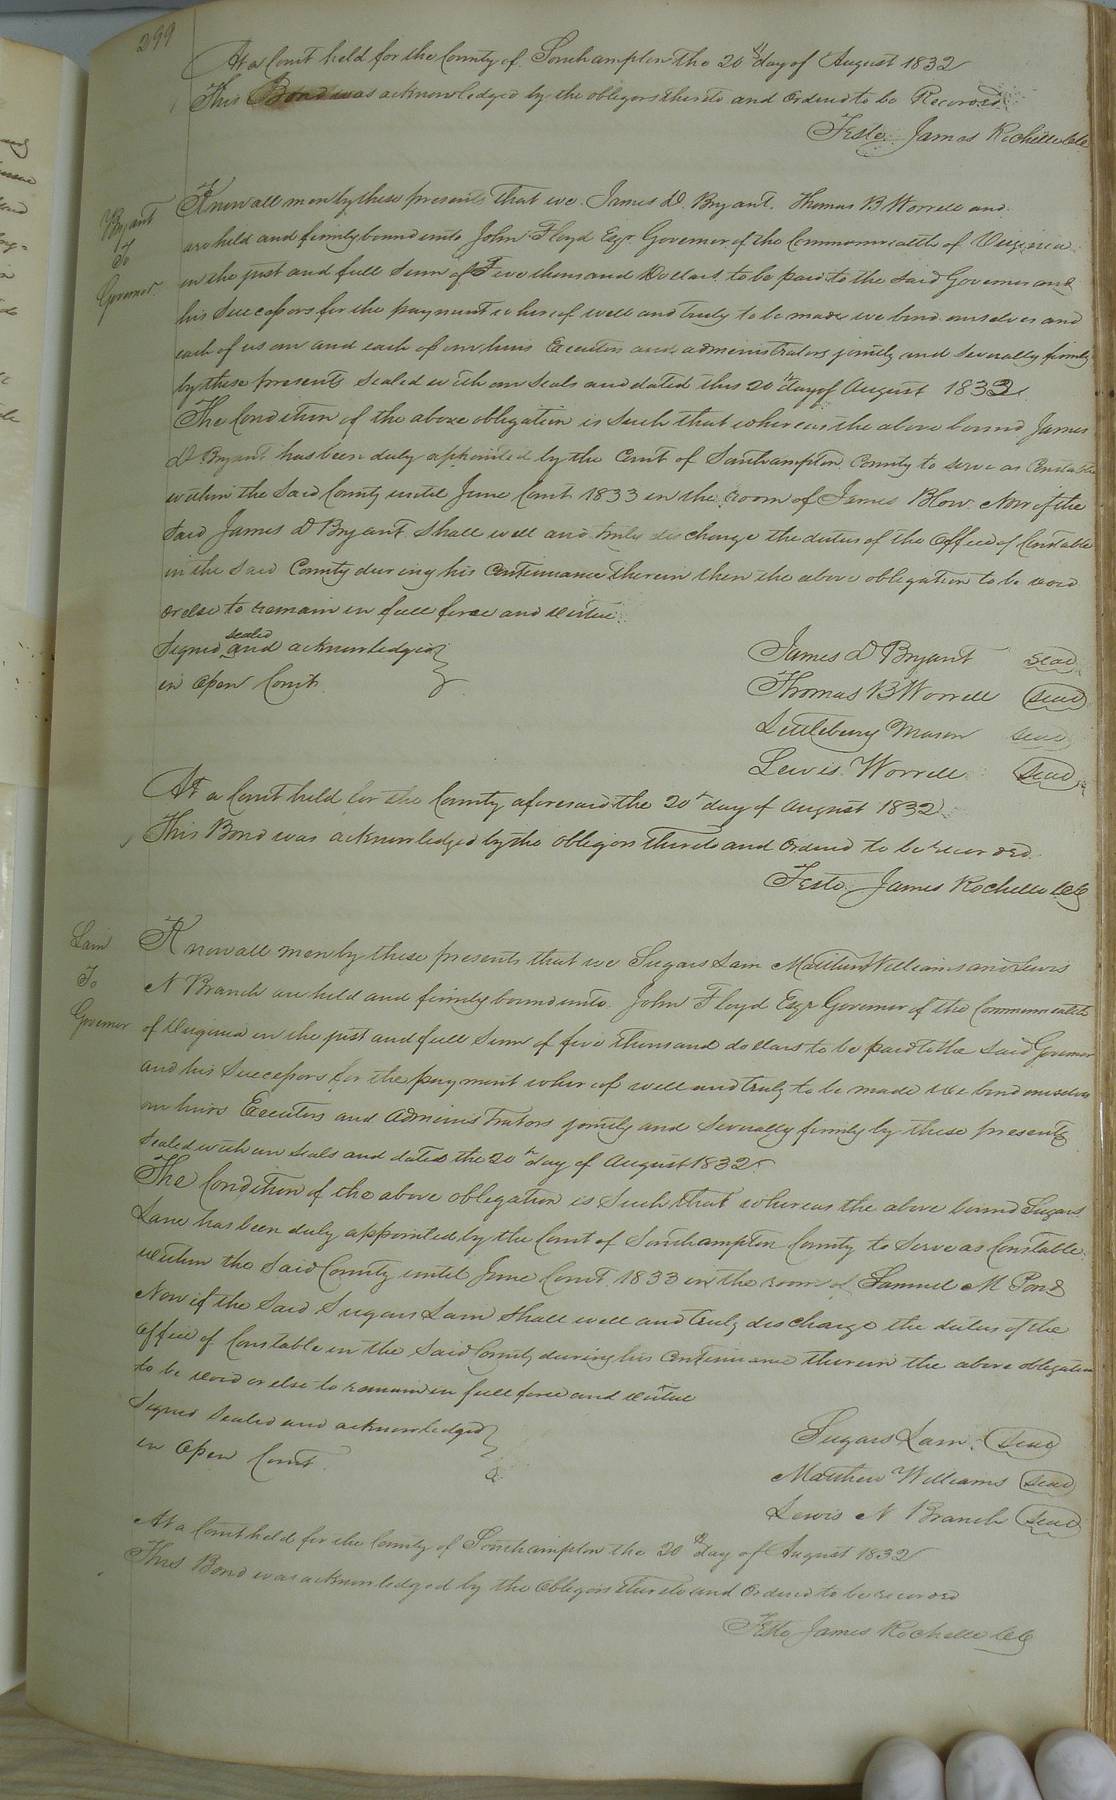 299
At a Court held for the County of Southampton the 20th day of August 1832
This Bond was acknowledged by the obligors thereto and Ordered to be Recorded
Teste James Rochelle CC
Bryant
To
Governor
Know all men by these presents that we James D. Bryant, Thomas B Worrell and
are held and firmly bound unto John Floyd Esqr Governor of the Commonwealth of Virginia
in the just and full Sum of Five thousand Dollars to be paid to the Said Governor and
his Successors for the payment whereof well and truly to be made we bind ourselves and
each of us our and each of our heirs Executors and administrators jointly and Severally firmly
by these presents Sealed with our Seals and dated this 20th day of August 1832
The Condition of the above obligation is Such that whereas the above bound James
D Bryant has been duly appointed by the Court of Southampton County to serve as Constable
within the Said County until June Court 1833 in the room of James Blow Now if the
Said James D Bryant Shall well and truly discharge the duties of the Office of Constable
in the Said County during his Continuance therein then the above obligation to be void
or else to remain in full force and virtue
Signed sealed and acknowledged
in Open Court
James D Bryant Seal
Thomas B Worrell Seal
Littlebury Mason Seal
Lewis Worrell Seal
At a Court held for the County aforesaid the 20th day of August 1832
This Bond was acknowledged by the obligors thereto and Ordered to be recorded
Teste James Rochelle CC
Lain
To
Governor
Know all men by these presents that we Sugars Lain Matthew Williams and Lewis
N Branch are held and firmly bound unto John Floyd Esqr Governor of the Commonwealth
of Virginia in the just and full Sum of five thousand dollars to be paid to the Said Governor
and his Successors for the payment whereof well and truly to be made we bind ourselves
our heirs Executors and Administrators jointly and Severally firmly by these presents
Sealed with our Seals and dated the 20th day of August 1832
The Condition of the above obligation is Such that whereas the above bound Sugars
Lane has been duly appointed by the Court of Southampton County to Serve as Constable
within the Said County until June Court 1833 in the room of Samuel M Pond
Now if the Said Sugars Lain Shall well and truly discharge the duties of the
Office of Constable in the Said County during his Continuance therein the above obligation
to be void or else to remain in full force and virtue
Signed Sealed and acknowledged
in Open Court
Sugars Lain Seal
Matthew Williams Seal
Lewis N Branch Seal
At a Court held for the County of Southampton the 20th day of August 1832
This Bond was acknowledged by the Obligors thereto and Ordered to be recorded
Teste James Rochelle CC